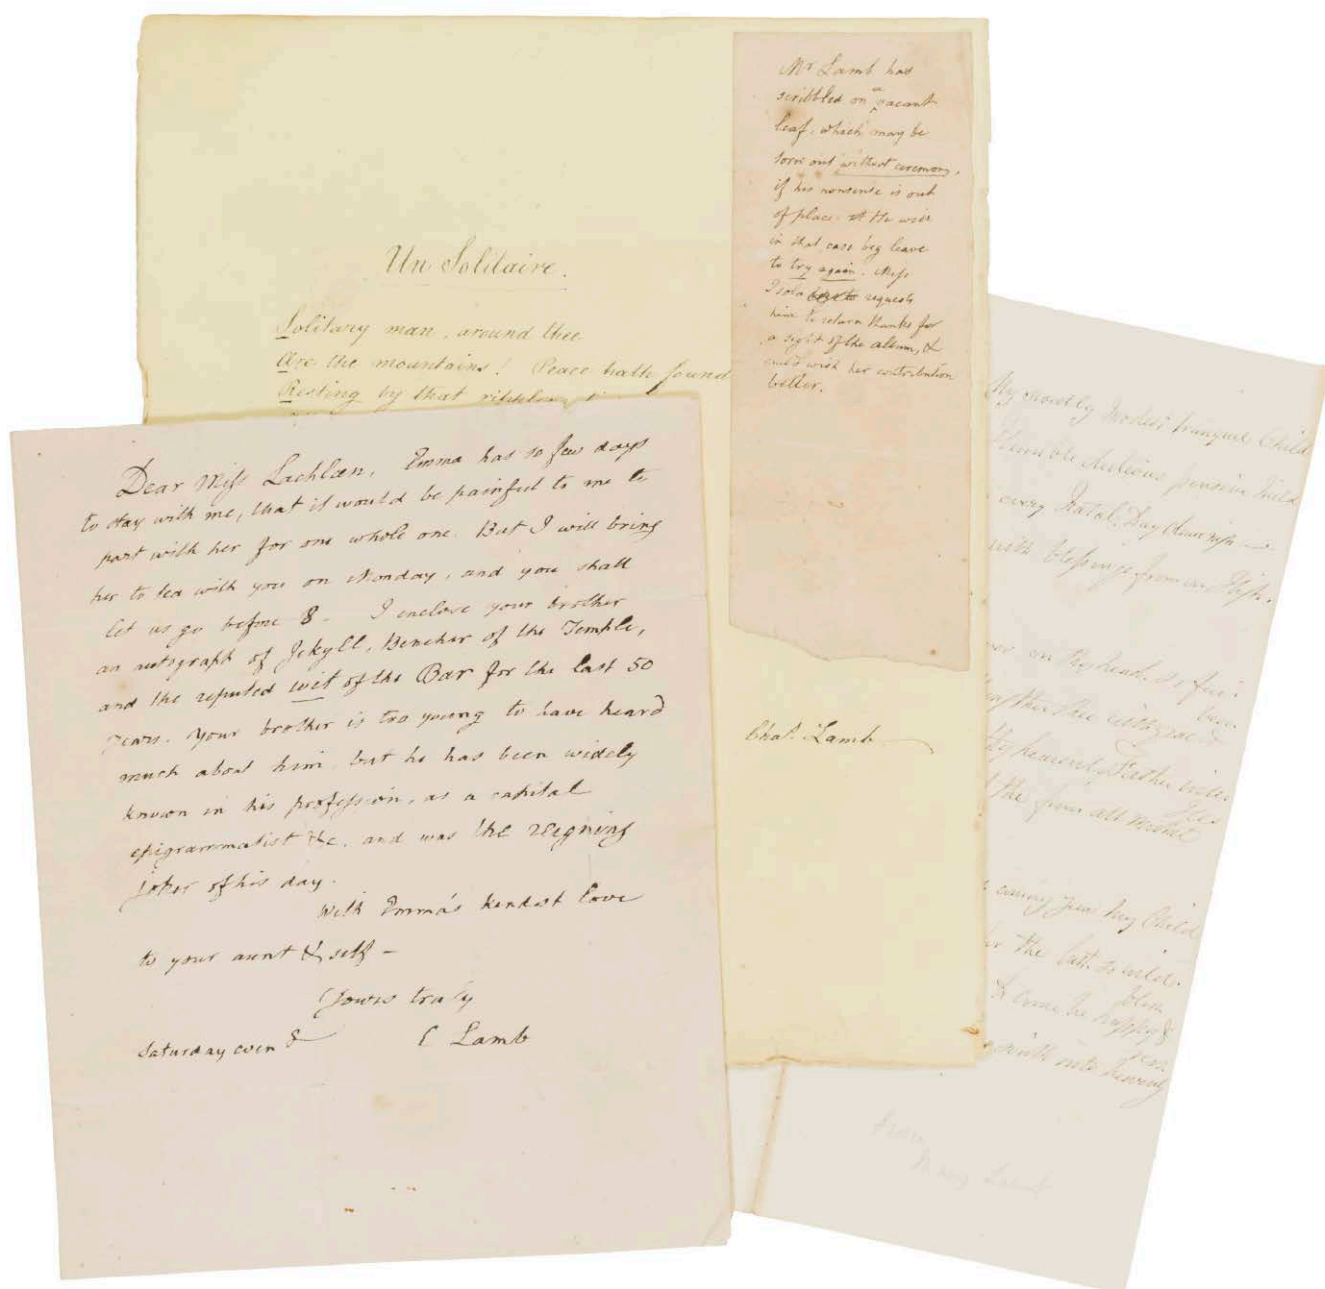 Un Solitaire.
Solitary man, around thee
Are the mountains! Peace hath found
Resting by that
Mr Lamb has
scribbled on a vacant
leaf, which may be
torn out without ceremony,
if his nonsense is out
of place. He will
in that case beg leave
to try again. Miss
Isola requests
him to return thanks for
a sight of the album, &
could wish her contribution
better.
Chas. Lamb
Dear Miss Lachlan, Emma has so few days
to stay with me, that it would be painful to me to
part with her for one whole one. But I will bring
her to tea with you on Monday, and you shall
let us go before 8. I enclose your brother
an autograph of Jekyll, Bencher of the Temple,
and the reputed wit of the Bar for the last 50
years. Your brother is too young to have heard
much about him but he has been widely
known in his profession, as a capital
epigrammatist &c. and was the reigning
joker of his day.
With Emma's kindest love
to your aunt & self —
Yours truly
Saturday even g C Lamb
My modest tranquil Child
Humble pensive
every Natal Day
with blessings from on High.
on thy head
thee with
heavenly Father
the from all
coming year my Child
the
come be happy &
into
From
Mary Lamb